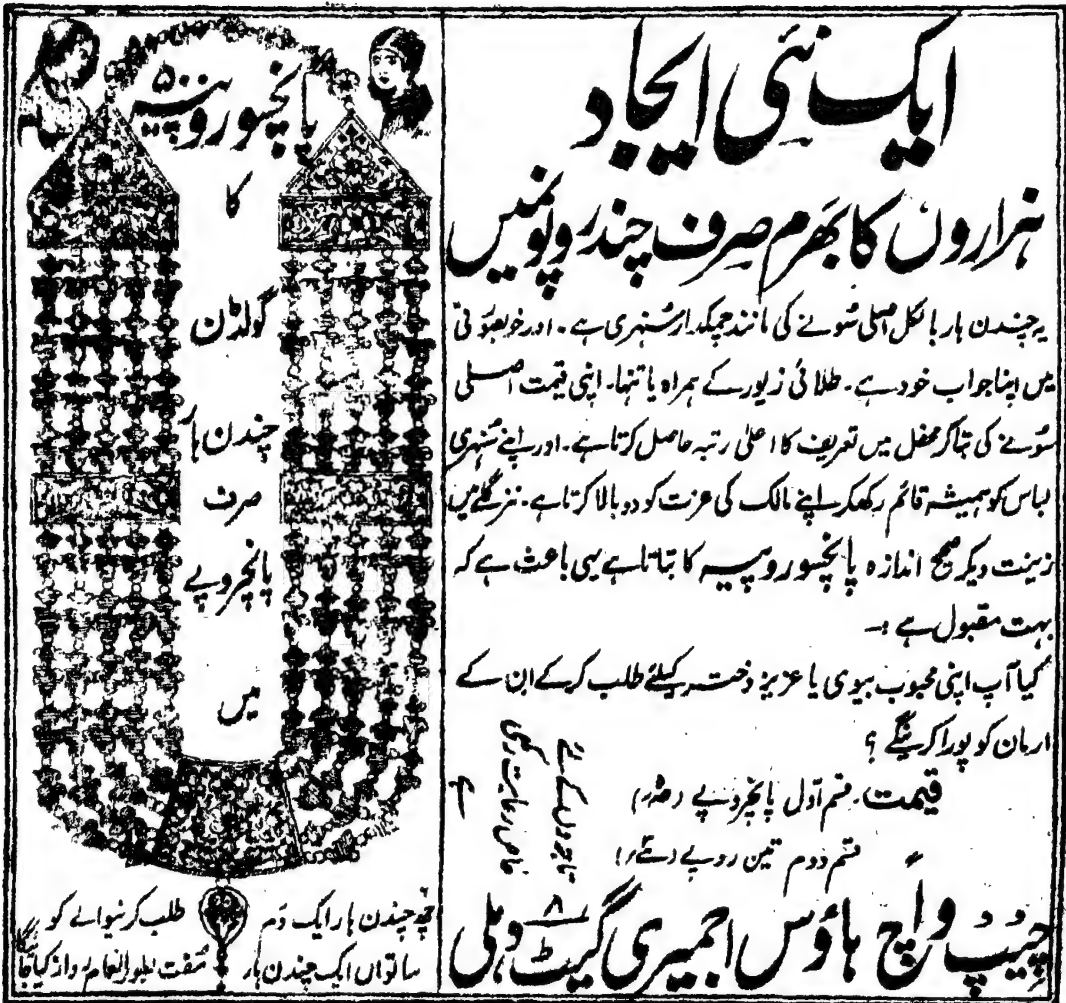 ایک نئی ایجاد
ہزاروں کا بھرم صرف چند روپونمیں
یہ چندن ہار بالکل اصلی سونے کی مانند چمکدار سنہری ہے۔ اور خوبصورتی
میں اپنا جواب خود ہے۔ طلائی زیور کے ہمراہ یا تنہا۔ اپنی قیمت اصلی
سونے کی بتا کر محفل میں تعریف کا اعلیٰ رتبہ حاصل کرتا ہے۔ اور اپنے سنہری
لباس کو ہمیشہ قائم رکھکر اپنے مالک کی عزت کو دوبالا کرتا ہے۔ نیز گلے میں
زینت دیکر صحیح اندازہ پانچسو روپیہ کا بتاتا ہے یہی باعث ہے کہ
بہت مقبول ہے :۔
کیا آپ اپنی محبوب بیوی یا عزیز دختر کیلئے طلب کرکے ان کے
ارمان کو پورا کرینگے ؟
قیمت۔ قسم اول پانچروپے
قسم دوم تین روپے
تاجروں کے لئے
خاص رعایت رکھی
ہے
چیپ واچ ہاؤس اجمیری گیٹ دہلی
۸
پانچسو روپیہ ۵۰۰
کا
گولڈن
چندن ہار
صرف
پانچروپے
میں
چھ چندن ہار ایک دم طلب کرنیوالے کو
ساتواں ایک چندن ہار مفت بطور انعام روانہ کیا جائیگا